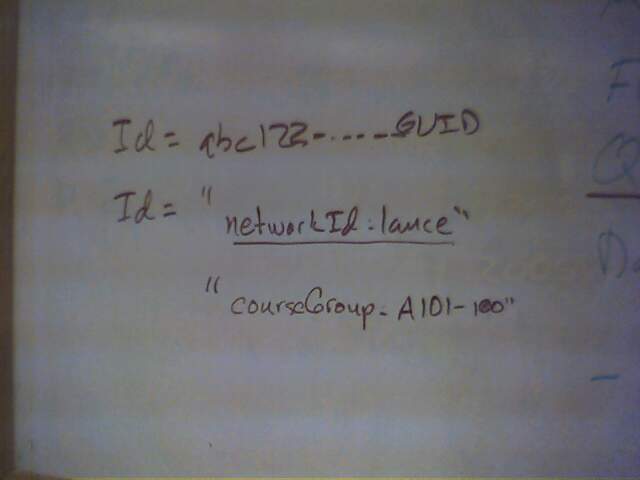 Id = abc123-....-GUID
Id = "networkId:lance"
"courseGroup-A101-100"